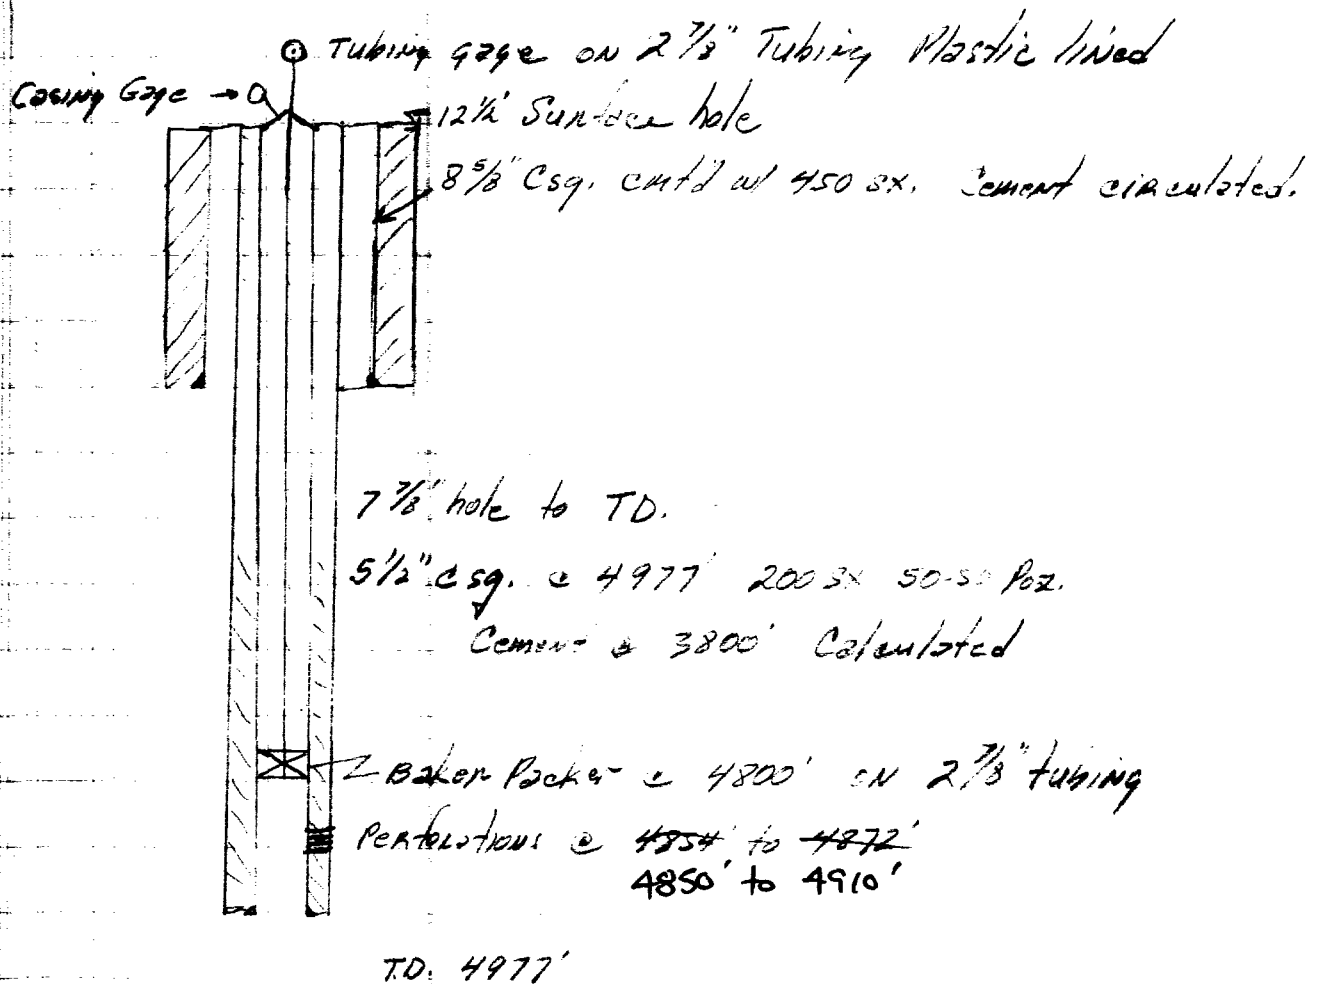 Tubing gage on 2 7/8" Tubing Plastic lined
Casing Gage
12 1/4" Surface hole
8 5/8" Csg. cmt'd w/ 450 sx. Cement circulated.
7 7/8" hole to TD.
5 1/2" csg. @ 4977' 200 sx 50-50 Poz.
Cement @ 3800' Calculated
Baker Packer @ 4800' on 2 7/8" tubing
Perforations @ 4854' to 4872'
4850' to 4910'
T.D. 4977'